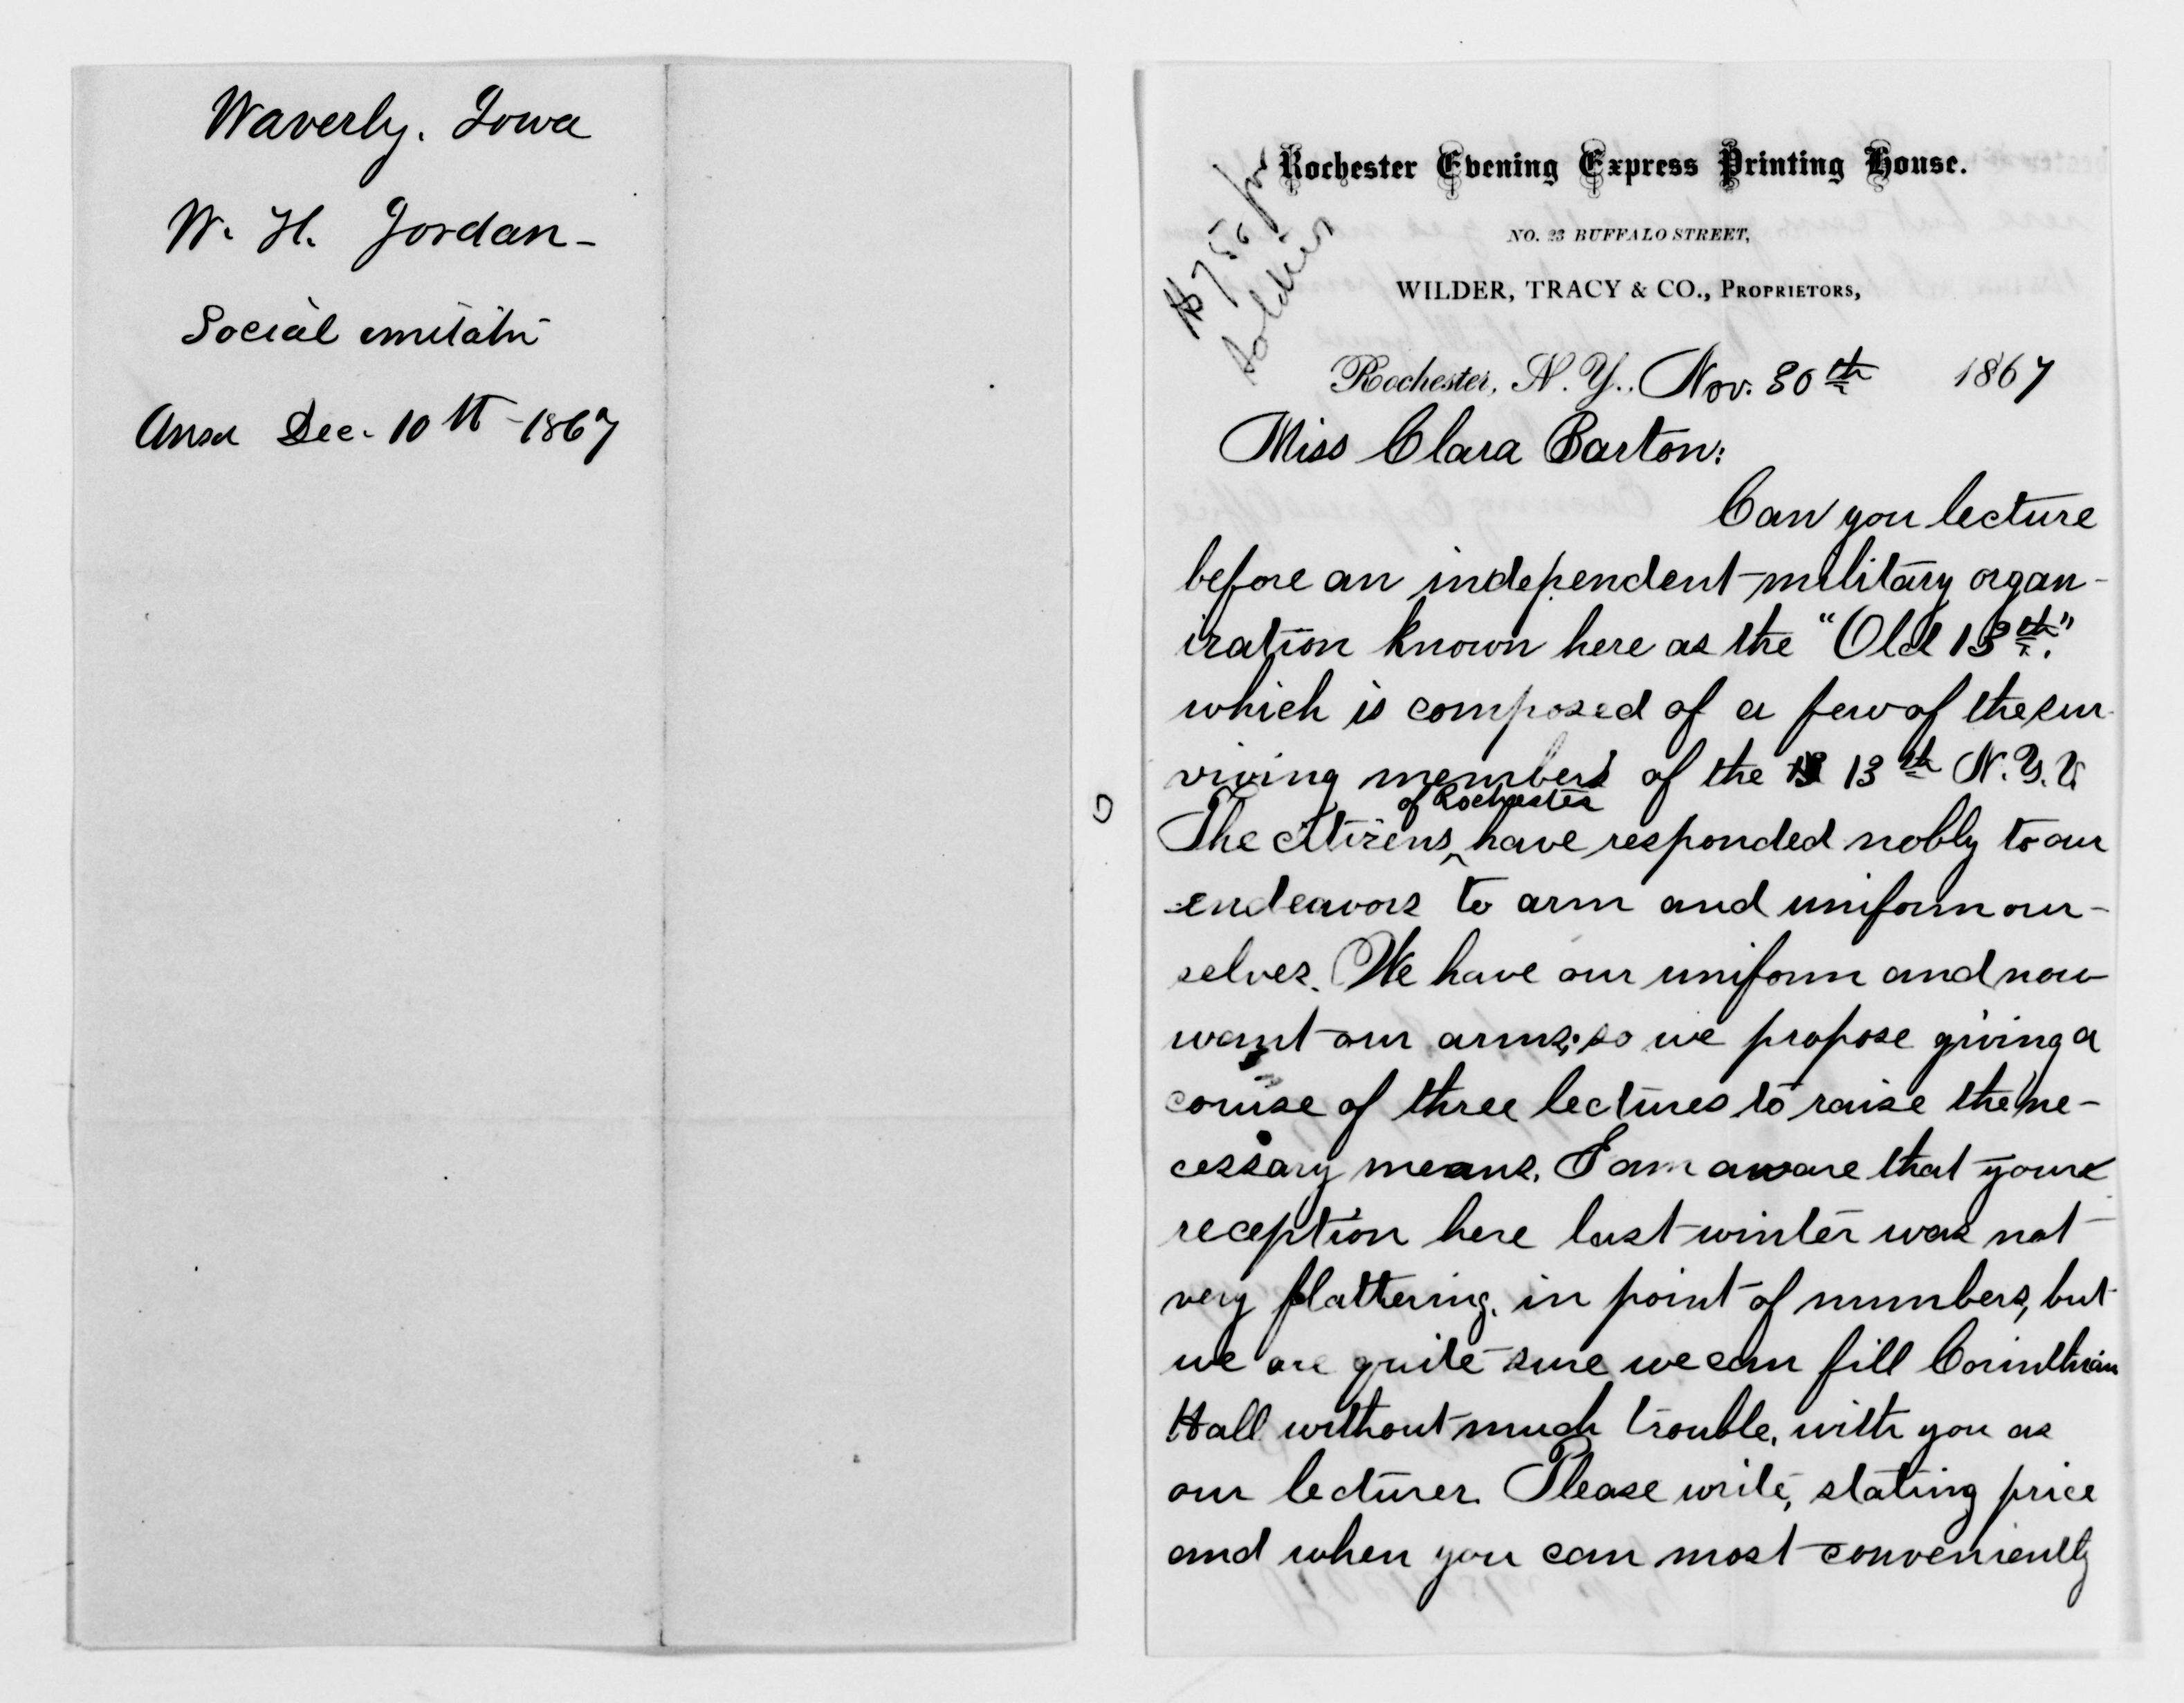 Waverly. Iowa
W. H. Jordan -
Social
Ansd Dec. 10th - 1867
$75.00 for
soldiers
Rochester Evening Express Printing House.
NO. 23 BUFFALO STREET,
WILDER, TRACY & CO., PROPRIETORS,
Rochester, N. Y., Nov. 30th 1867
Miss Clara Barton:
Can you lecture
before an independent military organ-
ization known here as the "Old 13th."
which is composed of a few of the sur-
viving members of the 13 13th N.Y.V.
of Rochester
The citizens ^ have responded nobly to our
endeavors to arm and uniform our-
selves. We have our uniform and now
want our arms; so we propose giving a
course of three lectures to raise the ne-
cessary means. I am aware that your
reception here last winter was not
very flattering, in point of numbers, but
we are quite sure we can fill Corinthian
Hall without much trouble, with you as
our lecturer. Please write, stating price
and when you can most conveniently